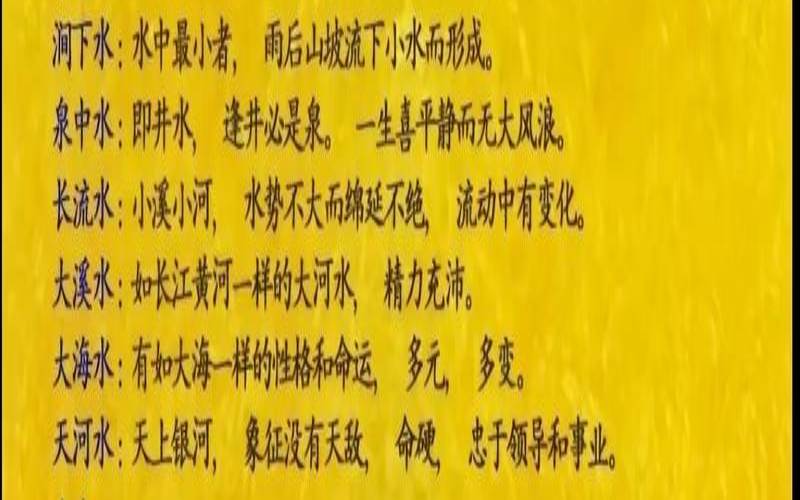 涧下水：水中最小者， 雨后山坡流下小水而形成。
泉中水：即井水， 逢井必是泉。 一生喜平静而无大风浪。
长流水：小溪小河， 水势不大而绵延不绝， 流动中有变化。
大溪水：如长江黄河一样的大河水， 精力充沛。
大海水：有如大海一样的性格和命运， 多元， 多变。
天河水：天上银河， 象征没有天敌， 命硬， 忠于领导和事业。